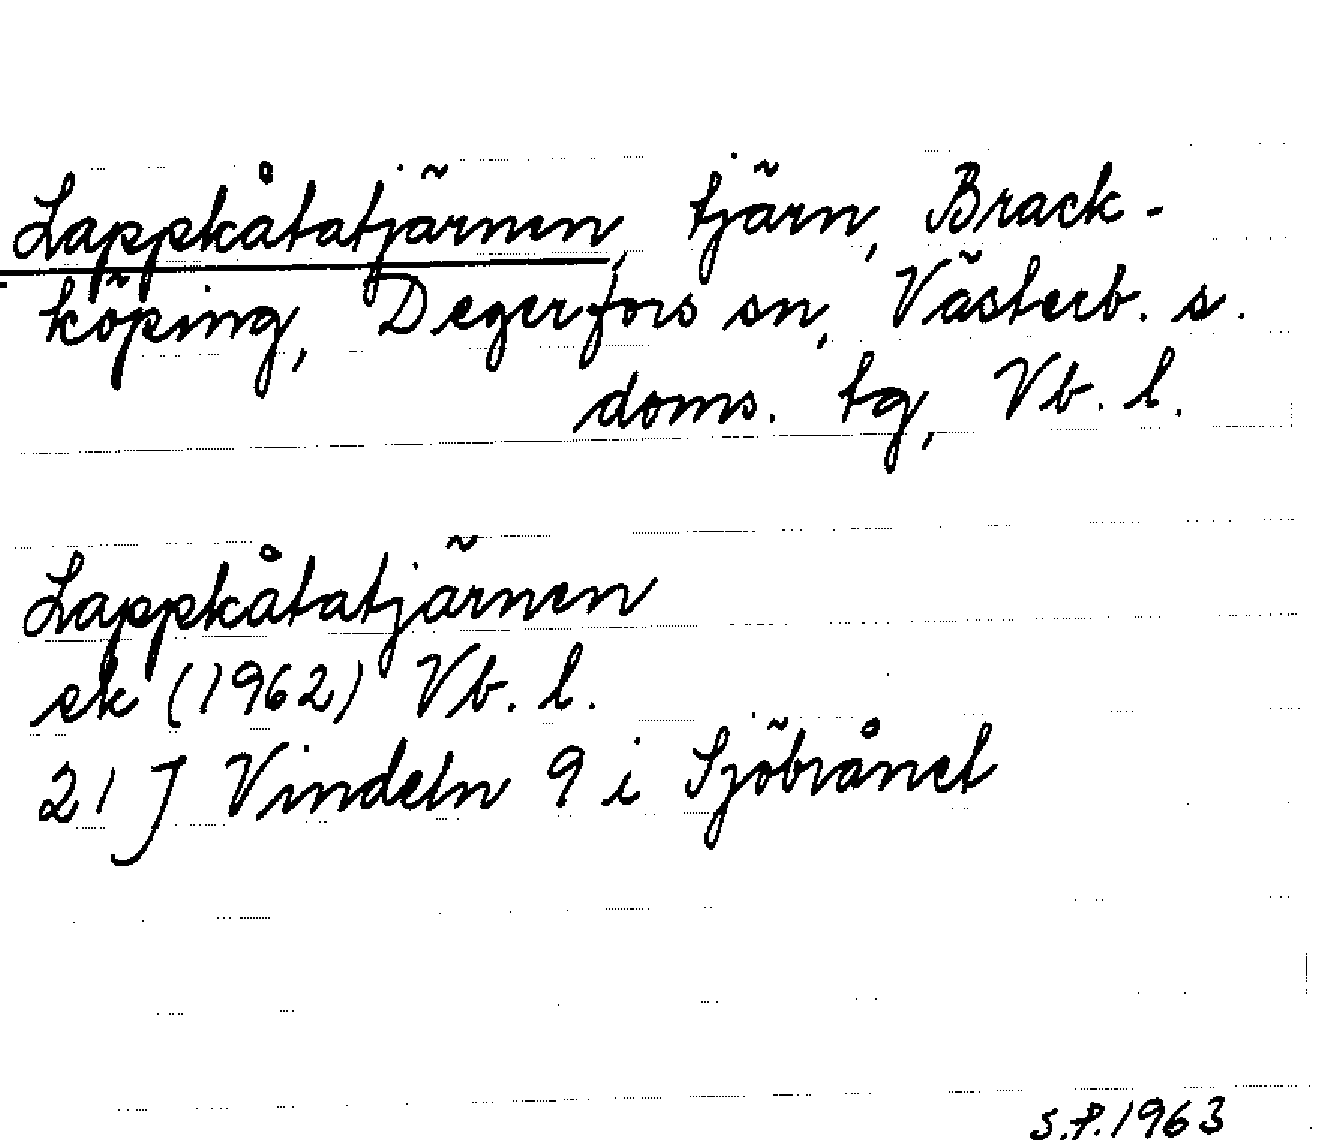 Lappkåtatjärnen, tjärn, Brack-
köping, Degerfors sn, Västerb. s.
doms. tg, Vb. l.
Lappkåtatjärnen
ek (1962) Vb. l.
21 J Vindeln 9 i Sjöbrånet
S.P. 1963